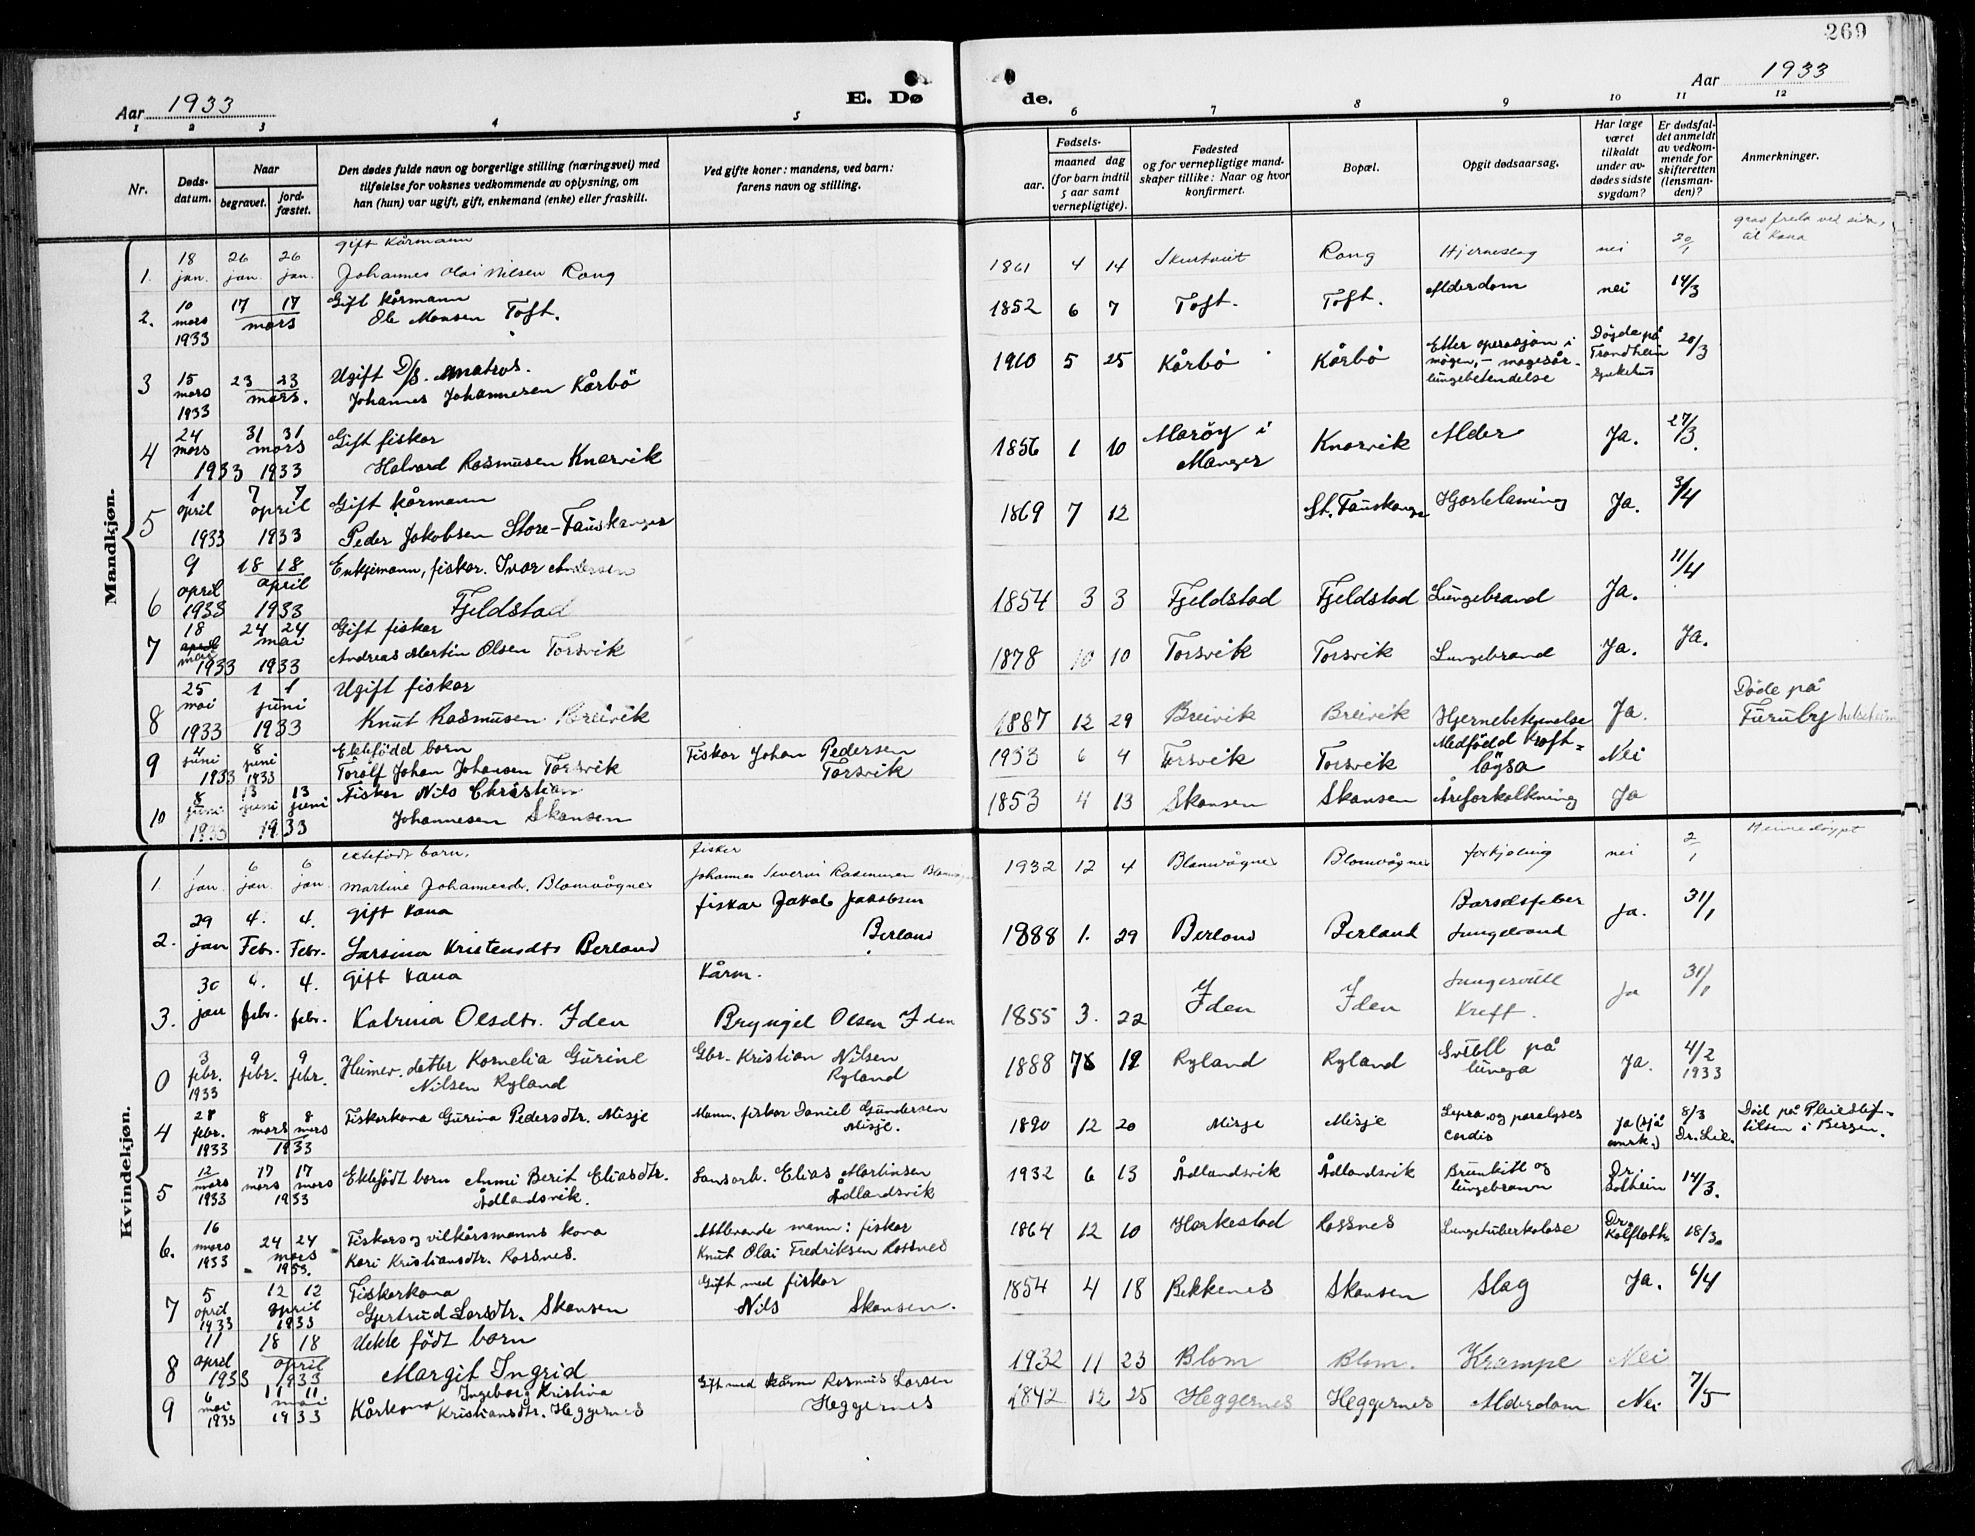 269
Aar 1933
E. Dø
de.
Aar 1933
1 2 3 4 5 6 7 8 9 10 11 12
Nr.
Døds-
datum.
Naar
begravet.
jord-
fæstet.
Den dødes fulde navn og borgerlige stilling (næringsvei) med
tilføielse for voksnes vedkommende av oplysning, om
han (hun) var ugift, gift, enkemand (enke) eller fraskilt.
Ved gifte koner: mandens, ved barn:
farens navn og stilling.
Fødsels-
aar.
maaned dag
(for barn indtil
5 aar samt
vernepligtige).
Fødested
og for vernepligtige mand-
skaper tillike: Naar og hvor
konfirmert.
Bopæl.
Opgit dødsaarsag.
Har læge
været
tilkaldt
under av-
dødes sidste
sygdom?
Er dødsfal-
det anmeldt
av vedkom-
mende for
skifteretten
(lensman-
den)?
Anmerkninger.
Mandkjøn.
1. 18 jan. 26 jan. 26 jan. Gift kårmann
Johannes Olai Nilsen Rong 1861 4 14 Rong Hjerneslag nei 20/1
2. 10 mars 1933 17 17 mars Gift kårmann
Ole Monsen Toft. 1852 6 7 Toft. Toft. Alderdom nei 14/3
3 15 mars 1933 23 23 mars. Ugift D/S. matros.
Johannes Johannesen Kårbö 1910 5 25 Kårbö Kårbö Etter operasjon i
mögen, - magesår -
lungebetendelse Trondheim 20/3
4 24 mars 1933 31 31 mars 1933 Gift fiskar
Halvard Rasmusen Knarvik 1856 1 10 Maröy i
Manger Knarvik Alder Ja. 27/3
5 1 april 1933 7 7 april 1933 Gift kårmann
Peder Jakobsen Store-Fauskanger 1869 7 12 St. Fauskanger Hjartelaming Ja. 3/4
6 9 april 1933 18 18 april 1933 Enkjemann, fiskar. Ivar Andersen
Fjeldstad 1854 3 3 Fjeldstad Fjeldstad Lungebrand Ja. 11/4
7 18 mai 1933 24 24 mai 1933 Gift fiskar
Andreas Martin Olsen Torsvik 1878 10 10 Torsvik Torsvik Lungebrand Ja. Ja.
8 25 mai 1933 1 1 juni 1933 Ugift fiskar
Knut Rasmusen Breivik 1887 12 29 Breivik Breivik Ja. Döde på
Furuby
9 4 juni 1933 8 juni 1933 Ektefödd born
Torolf Johan Johansen Torsvik Fiskar Johan Pedersen
Torsvik 1933 6 4 Torsvik Torsvik Medfödd kraft-
löysa Nei
10 8 juni 1933 13 juni 13 juni 1933 Fiskar Nils Christian
Johannesen Skansen 1853 4 13 Skansen Skansen Åreforkalkning Ja
Kvindekjøn.
1. 1 jan. 6 jan. 6 jan. ektefödt born.
Martine Johannesdr. Blomvågnes fisker
Johannes Severin Rasmusen 1932 12 4 Blomvågnes Blomvågnes forkjöling nei 2/1 Heimedöypt
2. 29 jan 4. Febr. 4. Febr. gift kona
Larsina Kristensdtr Berland fiskar Jakob Jakobsen
Berland 1888 1. 29 Berland Berland Barselsfeber
Ja. 31/1
3. 30 jan 4. febr. 4. febr. gift kona
Katrina Olsdtr. Iden Kårm.
Bryngel Olsen Iden 1855 3. 22 Iden Iden
Kreft. Ja 31/1
0 3 febr. 1933 9 febr. 9 febr. Heimev. dotter Kornelia Gurine
Nilsen Ryland Gbr. Kristian Nilsen
Ryland 1888 19 Ryland Ryland Svull på
lunga Ja. 4/2 1933
4 28 febr. 1933 8 mars 8 mars 1933 Fiskarkona Gurina Pedersdtr. Misje Mann. fiskar Daniel Gundersen
Misje. 1890 12 20 Misje Misje Lepra og paralyses
cordis Ja (sjå
anmrk.) 8/3
Dr. Lie. Död på Pleiestif-
telsen i Bergen.
5 12 mars 1933 17 mars 17 mars 1933 Ektefödt born Anni Berit Eliasdtr.
Ådlandsvik. Elias Martinsen
Ådlandsvik 1932 6 13 Ådlandsvik Ådlandsvik og
lungebrann Dr.
Solheim 14/3.
6. 16 mars 1933 24 24 mars 1933. Fiskars og vilkårsmanns kona
Kari Kristiansdtr. Rossnes. Attlevande mann: fiskar
Knut Olai Fredriksen Rossnes 1864 12 10 Harkestad Rossnes Lungetuberkolose Dr. 18/3.
7 5 april 1933 12 12 april 1933 Fiskarkona
Gjertrud Larsdtr. Skansen Gift med fiskar
Nils Skansen. 1854 4 18 Bekkenes Skansen Slag Ja. 6/4
8 11 april 1933 18 18 april 1933 Uekte födt born
Margit Ingrid 1932 11 23 Blom Blom. Krampe Nei
9 6 mai 1933 11 11. mai 1933 Ingeborg Kristina
Kårkona Kristiansdtr. Heggernes Gift med kårm Rasmus Larsen
Heggernes 1842 12 25 Heggernes Heggernes Alderdom Nei 7/5